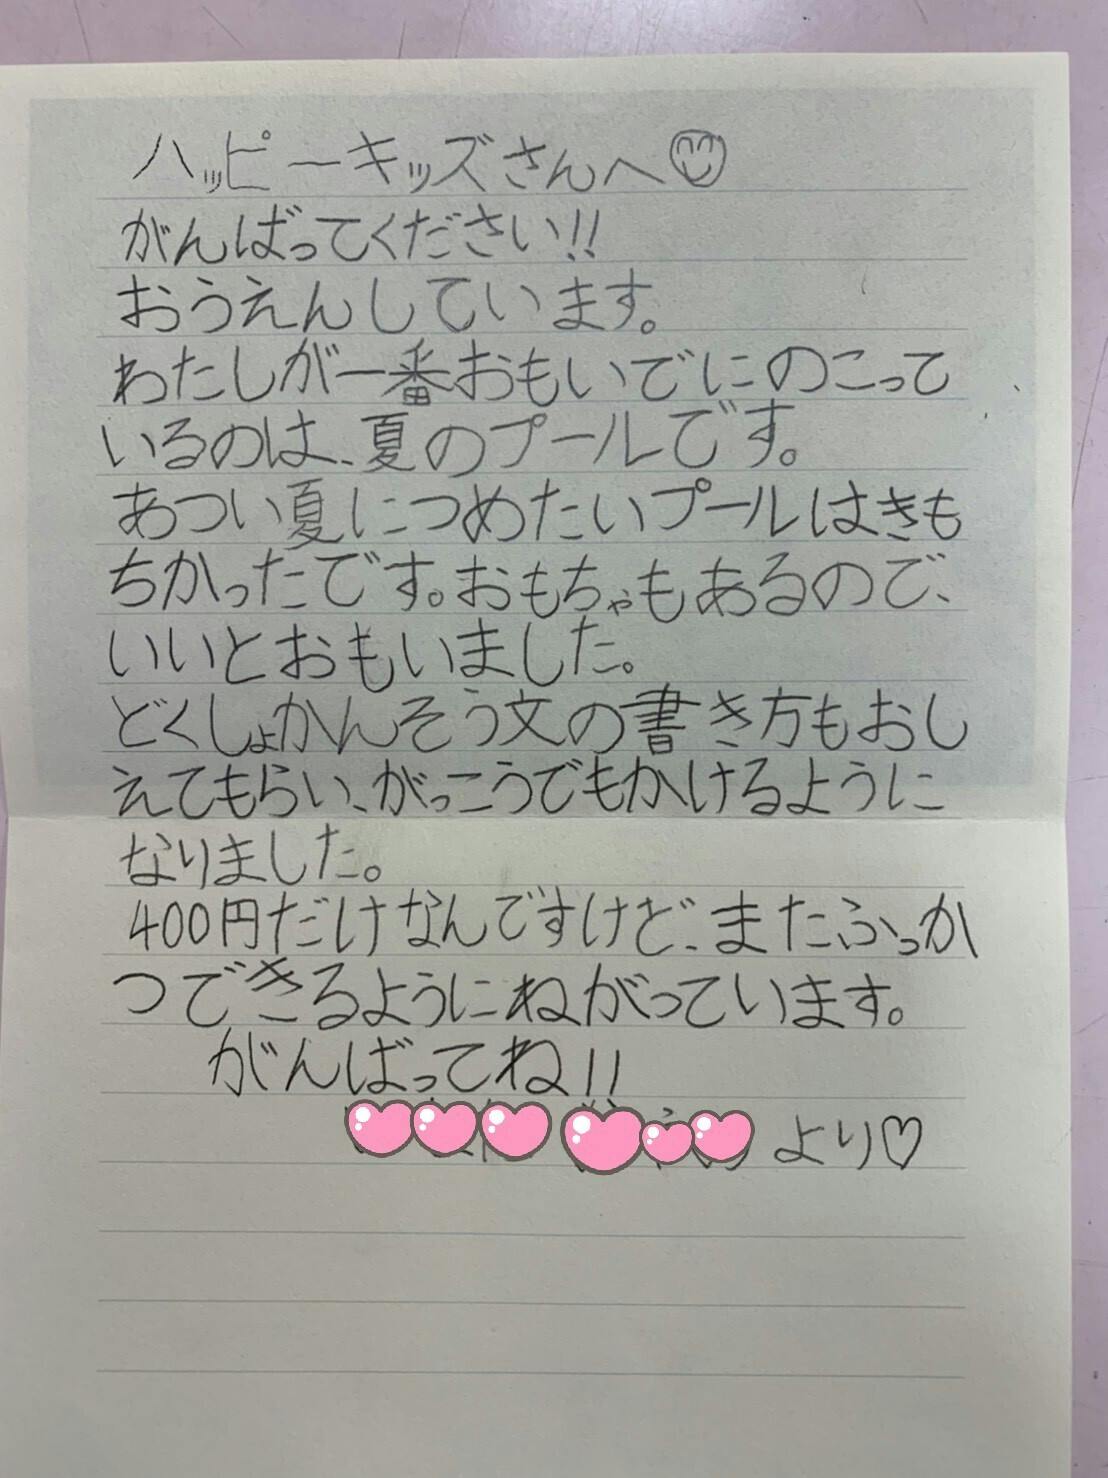 ハッピーキッズさんへ
がんばってください!!
おうえんしています。
わたしが一番おもいでにのこって
いるのは、夏のプールです。
あつい夏につめたいプールはきも
ちかったです。おもちゃもあるので、
いいとおもいました。
どくしょかんそう文の書き方もおし
えてもらい、がっこうでもかけるように
なりました。
400円だけなんですけど、またふっか
つできるようにねがっています。
がんばってね!!
より♡